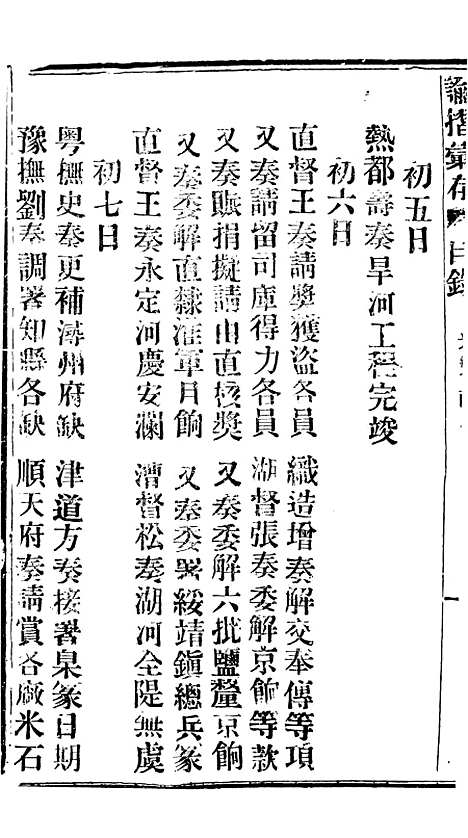 諭摺彙存 目錄
初五日
熱都壽奏旱河工程完竣
初六日
直督王奏請獎獲盜各員 織造增奏解交奉傳等項
又奏請留司庫得力各員 湖督張奏委解京餉等款
又奏賑捐擬請由直核獎 又奏委解六批鹽釐京餉
又奏委解直隸淮軍月餉 又奏委署綏靖鎮總兵篆
直督王奏永定河慶安瀾 漕督松奏湖河全隄無虞
初七日
粵撫史奏更補潯州府缺 津道方奏接署臬篆日期
豫撫劉奏調署知縣各缺 順天府奏請賞各廠米石
一